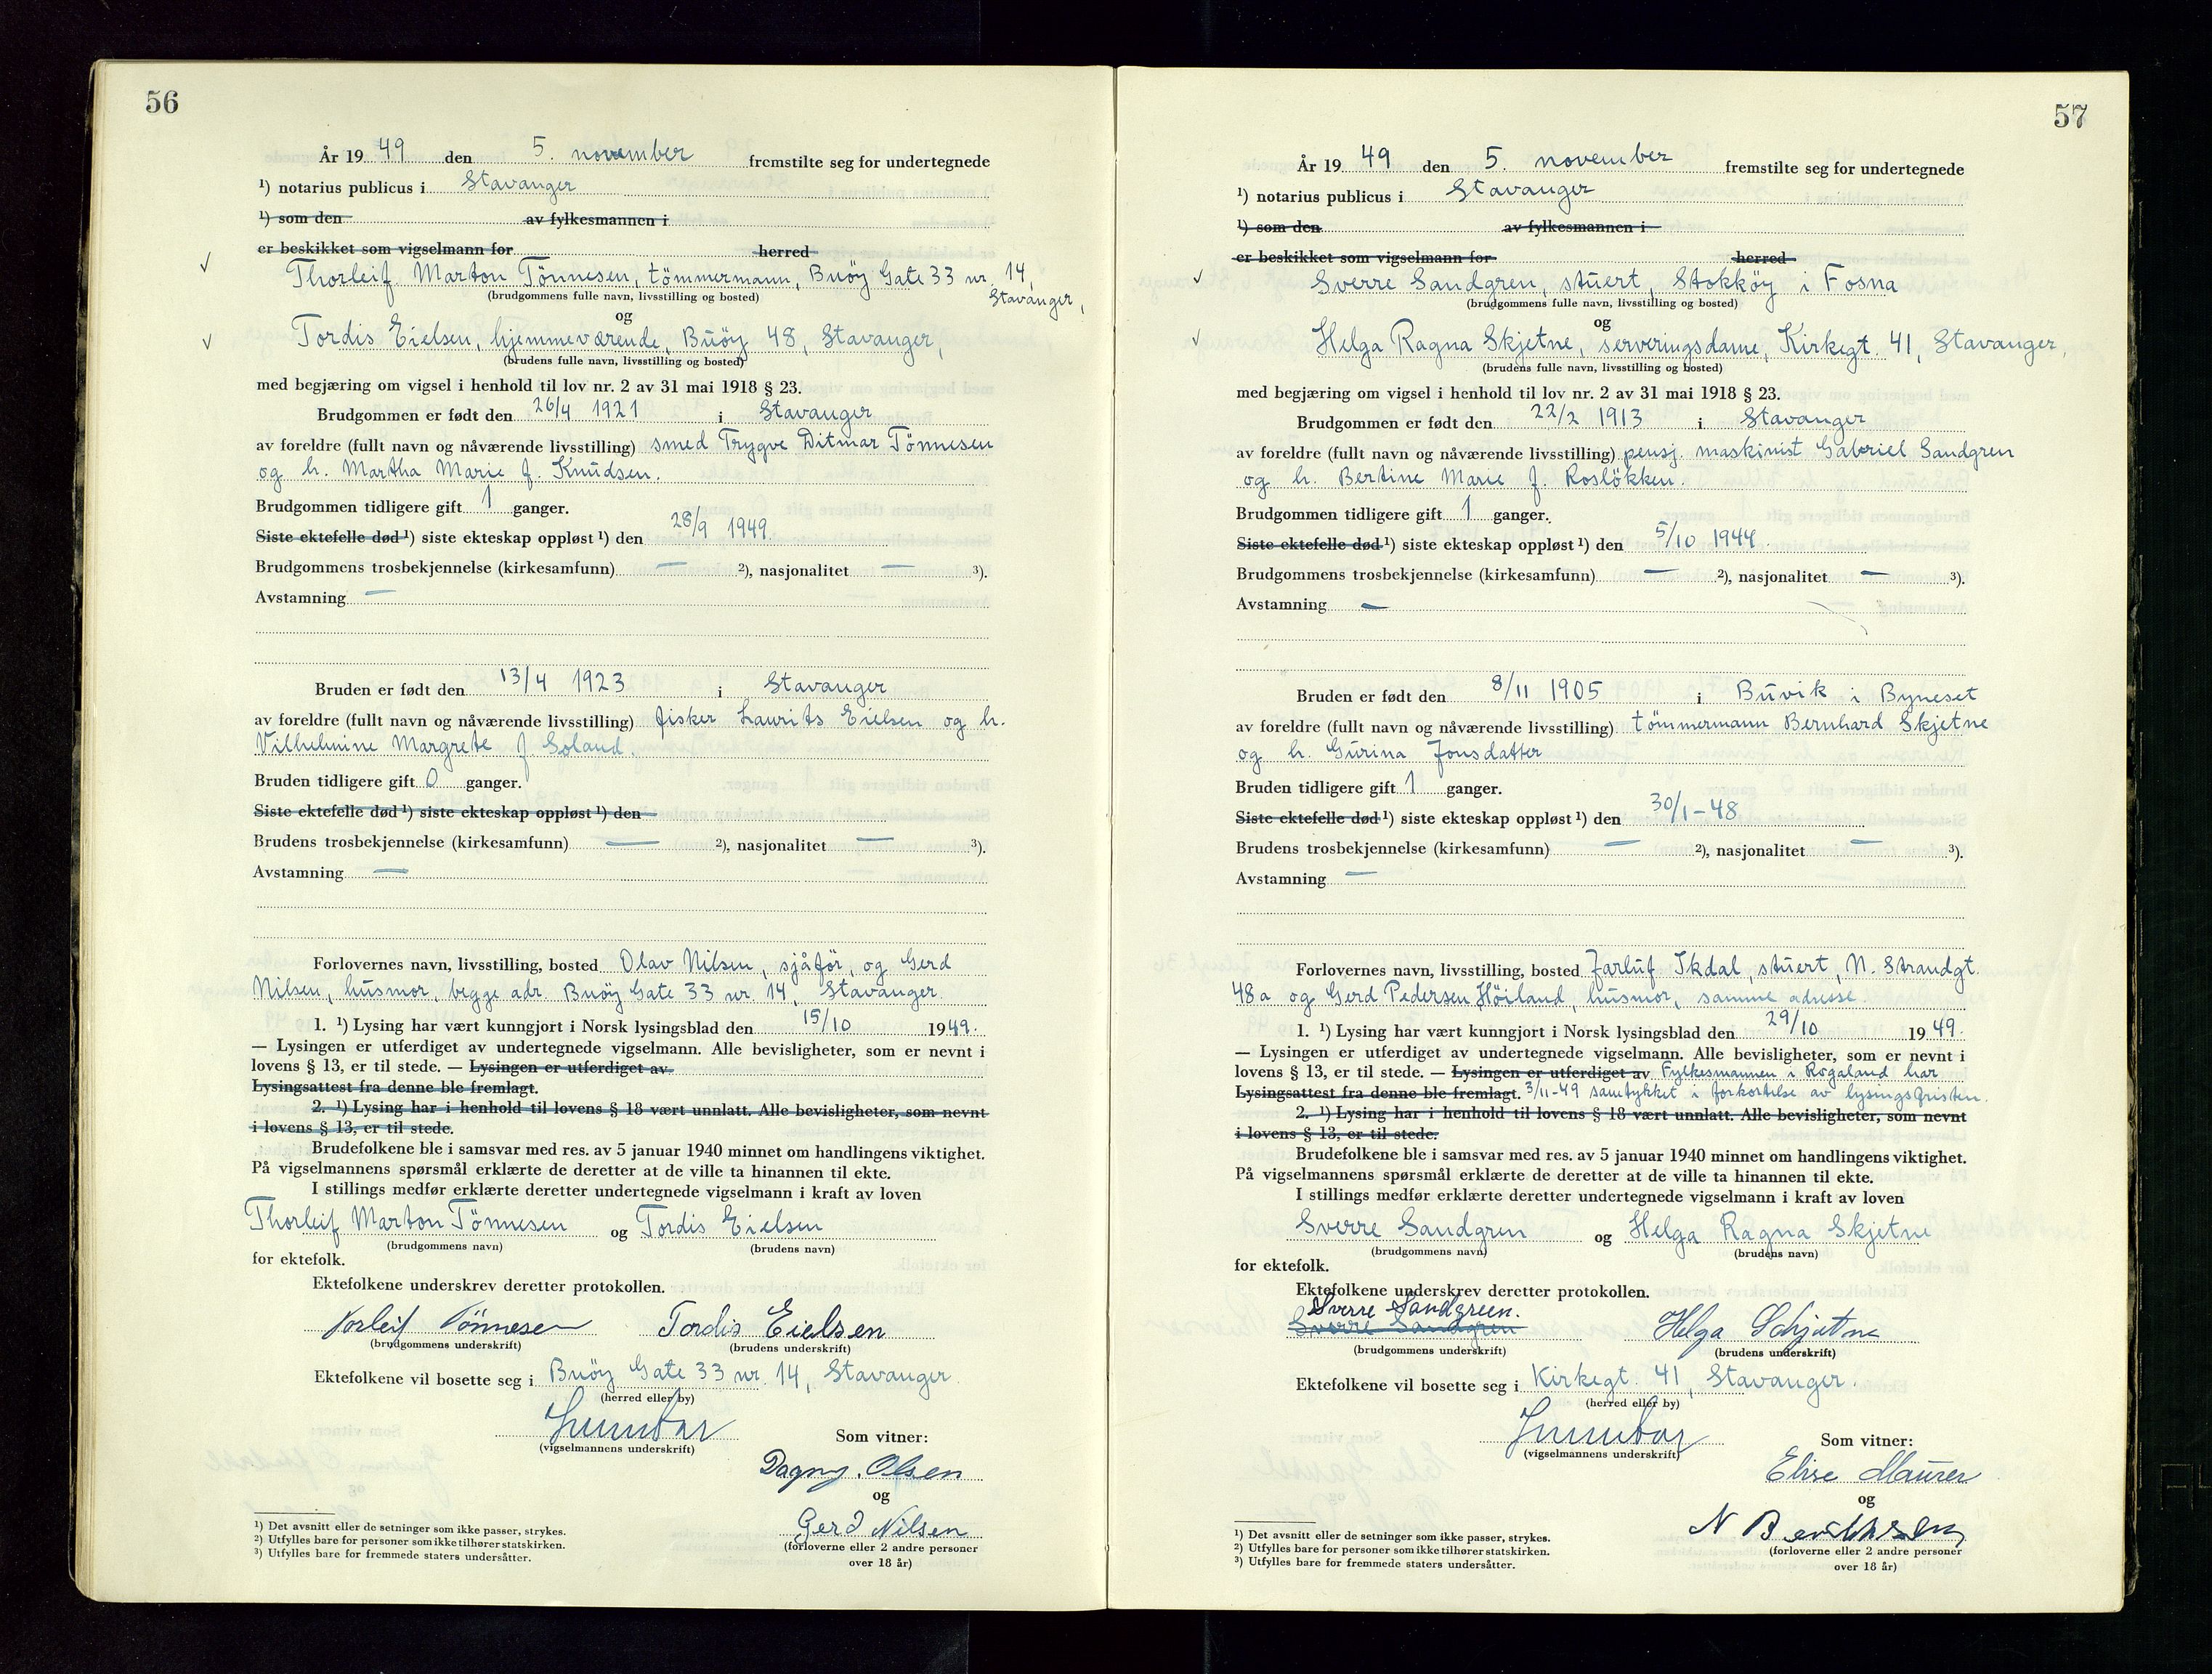 56
År 1949 den 5. november fremstilte seg for undertegnede
¹) notarius publicus i Stavanger
¹) som den av fylkesmannen i
er beskikket som vigselmann for herred
✓ Thorleif Marton Tönnesen, tömmermann, Buöy Gate 33 nr. 14,
Stavanger,
(brudgommens fulle navn, livsstilling og bosted)
og
✓ Tordis Eielsen, hjemmeværende, Buöy 48, Stavanger,
(brudens fulle navn, livsstilling og bosted)
med begjæring om vigsel i henhold til lov nr. 2 av 31 mai 1918 § 23.
Brudgommen er født den 26/4 1921 i Stavanger
av foreldre (fullt navn og nåværende livsstilling) smed Trygve Ditmar Tönnesen
og h. Martha Marie f. Knudsen.
Brudgommen tidligere gift 1 ganger.
Siste ektefelle død ¹) siste ekteskap oppløst ¹) den 28/9 1949.
Brudgommens trosbekjennelse (kirkesamfunn) — ²), nasjonalitet — ³).
Avstamning —
Bruden er født den 13/4 1923 i Stavanger
av foreldre (fullt navn og nåværende livsstilling) fisker Laurits Eielsen og h.
Vilhelmine Margrete f. Soland.
Bruden tidligere gift 0 ganger.
Siste ektefelle død ¹) siste ekteskap oppløst ¹) den
Brudens trosbekjennelse (kirkesamfunn) — ²), nasjonalitet — ³).
Avstamning —
Forlovernes navn, livsstilling, bosted Olav Nilsen, sjåför, og Gerd
Nilsen, husmor, begge adr. Buöy Gate 33 nr. 14, Stavanger.
1. ¹) Lysing har vært kunngjort i Norsk lysingsblad den 15/10 1949.
— Lysingen er utferdiget av undertegnede vigselmann. Alle bevisligheter, som er nevnt i
lovens § 13, er til stede. — Lysingen er utferdiget av
Lysingsattest fra denne ble fremlagt.
2. ¹) Lysing har i henhold til lovens § 18 vært unnlatt. Alle bevisligheter, som nevnt
i lovens § 13, er til stede.
Brudefolkene ble i samsvar med res. av 5 januar 1940 minnet om handlingens viktighet.
På vigselmannens spørsmål erklærte de deretter at de ville ta hinannen til ekte.
I stillings medfør erklærte deretter undertegnede vigselmann i kraft av loven
Thorleif Marton Tönnesen og Tordis Eielsen
(brudgommens navn) (brudens navn)
for ektefolk.
Ektefolkene underskrev deretter protokollen.
Torleif Tönnesen Tordis Eielsen
(brudgommens underskrift) (brudens underskrift)
Ektefolkene vil bosette seg i Buöy Gate 33 nr. 14, Stavanger.
(herred eller by)
(vigselmannens underskrift)
Som vitner:
Dagny. Olsen
og
Gerd Nilsen
(forloverne eller 2 andre personer
over 18 år)
¹) Det avsnitt eller de setninger som ikke passer, strykes.
²) Utfylles bare for personer som ikke tilhører statskirken.
³) Utfylles bare for fremmede staters undersåtter.
57
År 1949 den 5. november fremstilte seg for undertegnede
¹) notarius publicus i Stavanger
¹) som den av fylkesmannen i
er beskikket som vigselmann for herred
✓ Sverre Sandgren, stuert, Stokköy i Fosna
(brudgommens fulle navn, livsstilling og bosted)
og
✓ Helga Ragna Skjetne, serveringsdame, Kirkegt. 41, Stavanger,
(brudens fulle navn, livsstilling og bosted)
med begjæring om vigsel i henhold til lov nr. 2 av 31 mai 1918 § 23.
Brudgommen er født den 22/2 1913 i Stavanger
av foreldre (fullt navn og nåværende livsstilling) pensj. maskinist Gabriel Sandgren
og h. Bertine Marie f. Roslökken.
Brudgommen tidligere gift 1 ganger.
Siste ektefelle død ¹) siste ekteskap oppløst ¹) den 5/10 1944.
Brudgommens trosbekjennelse (kirkesamfunn) — ²), nasjonalitet — ³).
Avstamning —
Bruden er født den 8/11 1905 i Buvik i Byneset
av foreldre (fullt navn og nåværende livsstilling) tömmermann Bernhard Skjetne
og h. Gurina Jonsdatter
Bruden tidligere gift 1 ganger.
Siste ektefelle død ¹) siste ekteskap oppløst ¹) den 30/1-48
Brudens trosbekjennelse (kirkesamfunn) — ²), nasjonalitet — ³).
Avstamning —
Forlovernes navn, livsstilling, bosted Jarluf Ikdal, stuert, N. Strandgt.
48a og Gerd Pedersen Höiland, husmor, samme adresse
1. ¹) Lysing har vært kunngjort i Norsk lysingsblad den 29/10 1949.
— Lysingen er utferdiget av undertegnede vigselmann. Alle bevisligheter, som er nevnt i
lovens § 13, er til stede. — Lysingen er utferdiget av Fylkesmannen i Rogaland har
Lysingsattest fra denne ble fremlagt. 3/11-49 samtykket i forkortelse av lysingsfristen.
2. ¹) Lysing har i henhold til lovens § 18 vært unnlatt. Alle bevisligheter, som nevnt
i lovens § 13, er til stede.
Brudefolkene ble i samsvar med res. av 5 januar 1940 minnet om handlingens viktighet.
På vigselmannens spørsmål erklærte de deretter at de ville ta hinannen til ekte.
I stillings medfør erklærte deretter undertegnede vigselmann i kraft av loven
Sverre Sandgren og Helga Ragna Skjetne
(brudgommens navn) (brudens navn)
for ektefolk.
Ektefolkene underskrev deretter protokollen.
Sverre Sandgreen.
Sverre Sandgren Helga Schjetne
(brudgommens underskrift) (brudens underskrift)
Ektefolkene vil bosette seg i Kirkegt. 41, Stavanger.
(herred eller by)
(vigselmannens underskrift)
Som vitner:
Elise Maurer
og
N
(forloverne eller 2 andre personer
over 18 år)
¹) Det avsnitt eller de setninger som ikke passer, strykes.
²) Utfylles bare for personer som ikke tilhører statskirken.
³) Utfylles bare for fremmede staters undersåtter.